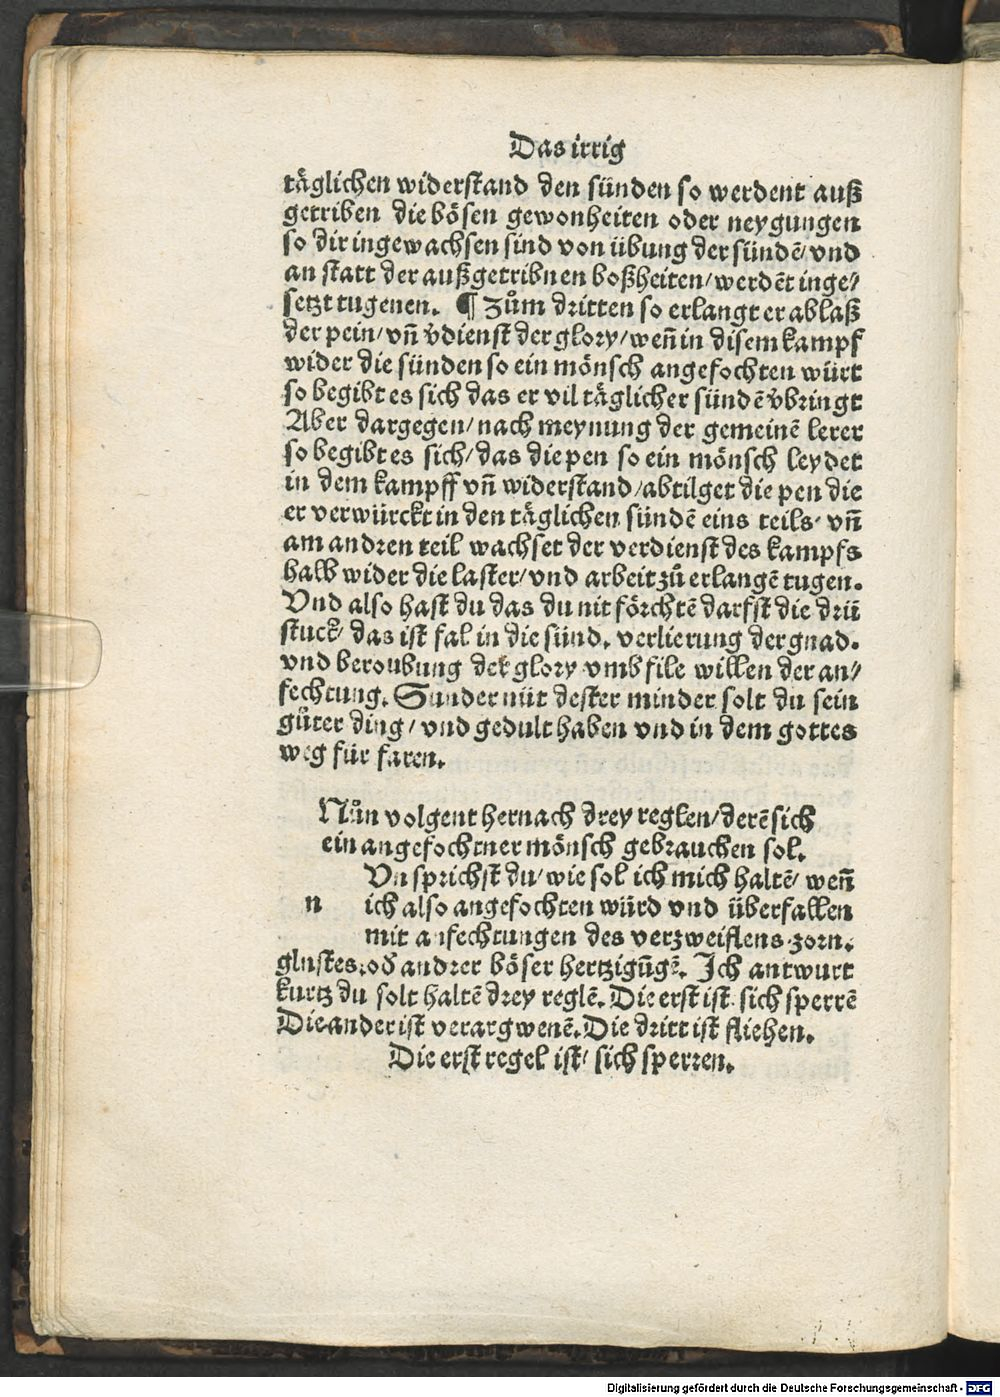 Das irrig
täglichen widerstand den sünden so werdent auß
getriben die bösen gewonheiten oder neygungen
so dir ingewachsen sind von übung der sündē/ vnd
an statt der außgetribnen boßheiten/ werdēt inge/
setzt tugenen. ¶ Zům dritten so erlangt er ablaß
der pein/ vn̄ v̓dienst der glory/ wen̄ in disem kampf
wider die sünden so ein mönsch angefochten würt
so begibt es sich das er vil täglicher sündē v̓bringt
Aber dargegen/ nach meynung der gemeinē lerer
so begibt es sich/ das die pen so ein mönsch leydet
in dem kampff vn̄ widerstand/ abtilget die pen die
er verwürckt in den täglichen sündē eins teils. vn̄
am andren teil wachset der verdienst des kampfs
halb wider die laster/ vnd arbeit zů erlangē tugen.
Vnd also hast du das du nit förchtē darfst die drü
stuck/ das ist fal in die sünd. verlierung der gnad.
vnd beroubung der glory vmb file willen der an/
fechtung. Sunder nüt dester minder solt du sein
gůter ding/ vnd gedult haben vnd in dem gottes
weg für faren.
Nůn volgent hernach drey reglen/ derē sich
ein angefochtner mönsch gebrauchen sol.
Vn sprichst du/ wie sol ich mich haltē/ wen̄
n ich also angefochten würd vnd überfallen
mit anfechtungen des verzweiflens. zorn.
glustes. od̓ andrer böser hertzigūgē. Ich antwurt
kurtz du solt haltē drey reglē. Die erst ist. sich sperrē
Die ander ist verargwenē. Die dritt ist fliehen.
Die erst regel ist/ sich sperren.
Digitalisierung gefördert durch die Deutsche Forschungsgemeinschaft - DFG